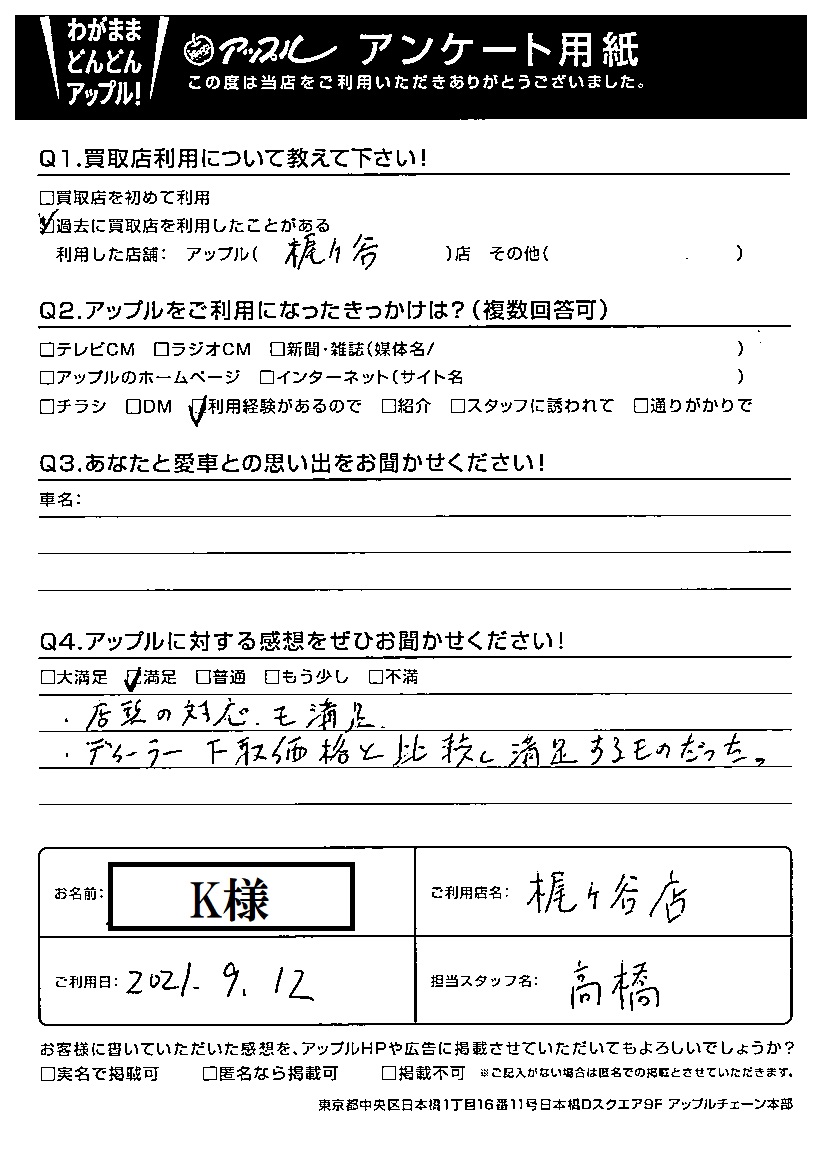 わがまま
どんどん
アップル!
アップル アンケート用紙
この度は当店をご利用いただきありがとうございました。
Q1.買取店利用について教えて下さい!
□買取店を初めて利用
☑過去に買取店を利用したことがある
利用した店舗: アップル( 梶ヶ谷 )店 その他( )
Q2.アップルをご利用になったきっかけは?(複数回答可)
□テレビCM □ラジオCM □新聞・雑誌(媒体名/ )
□アップルのホームページ □インターネット(サイト名 )
□チラシ □DM ☑利用経験があるので □紹介 □スタッフに誘われて □通りがかりで
Q3.あなたと愛車との思い出をお聞かせください!
車名:
Q4.アップルに対する感想をぜひお聞かせください!
□大満足 ☑満足 □普通 □もう少し □不満
・店頭の対応.も満足.
・ディーラー下取価格と比較し満足するものだった。
お名前: K様
ご利用店名: 梶ヶ谷店
ご利用日: 2021.9.12
担当スタッフ名: 高橋
お客様に書いていただいた感想を、アップルHPや広告に掲載させていただいてもよろしいでしょうか?
□実名で掲載可 □匿名なら掲載可 □掲載不可 ※ご記入がない場合は匿名での掲載とさせていただきます。
東京都中央区日本橋1丁目16番11号日本橋Dスクエア9F アップルチェーン本部